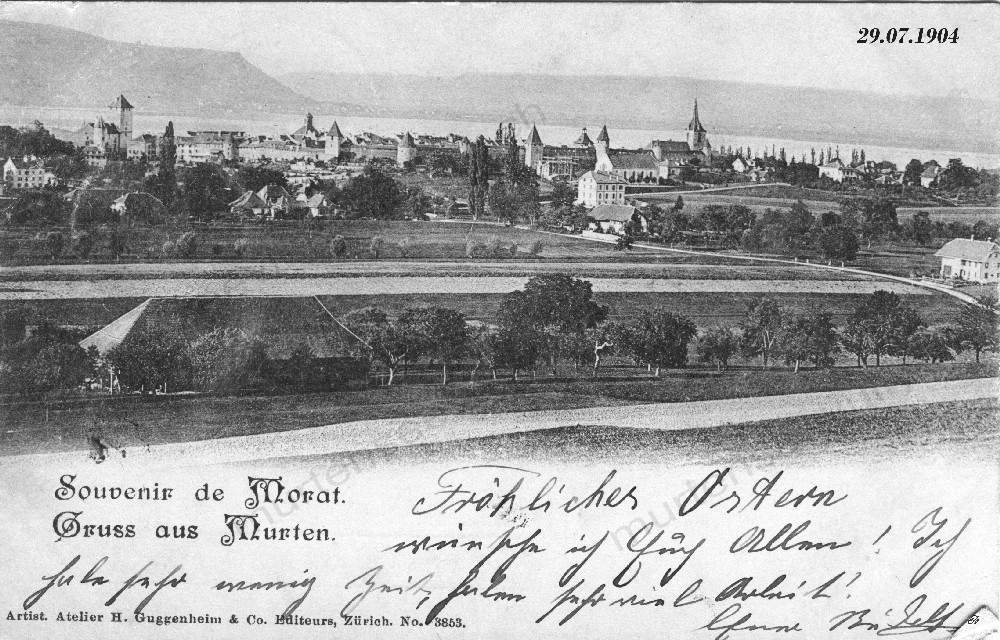 29.07.1904
Souvenir de Morat.
Gruss aus Murten.
Fröhlicher Ostern
wünsche ich Euch Allen! Ich
habe sehr wenig Zeit, haben sehr viel Arbeit!
Artist. Atelier H. Guggenheim & Co. Editeurs, Zürich. No. 3853.